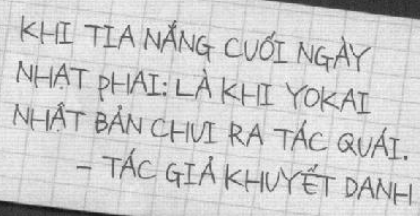 KHI TIA NẮNG CUỐI NGÀY
NHẠT PHAI: LÀ KHI YOKAI
NHẬT BẢN CHUI RA TÁC QUÁI.
- TÁC GIẢ KHUYẾT DANH